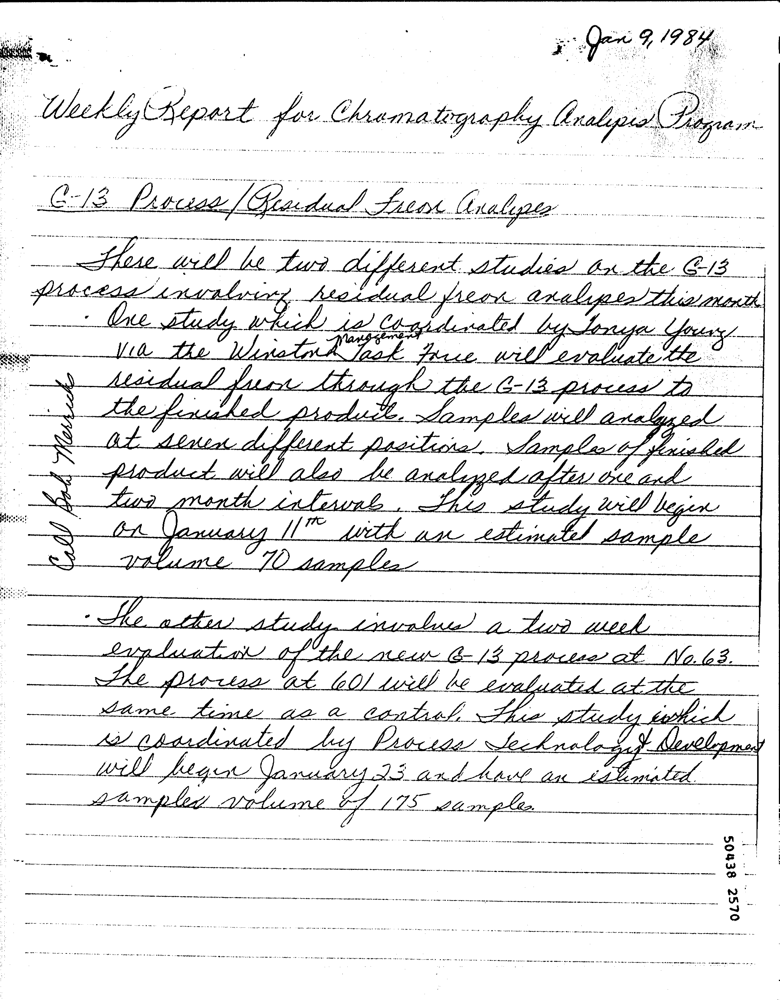 Jan 9, 1984
Weekly Report for Chromatography Analysis Program
G-13 Process / Residual Freon Analyses
There will be two different studies on the G-13
process involving residual freon analyses this month
· One study which is coordinated by Tonya Young
Management
via the Winston Task Force will evaluate the
residual freon through the G-13 process to
the finished product. Samples will analyzed
at seven different positions. Samples of finished
product will also be analyzed after one and
two month intervals. This study will begin
on January 11th with an estimated sample
volume 70 samples
Call Bob Merrick
· The other study involves a two week
evaluation of the new G-13 process at No. 63.
The process at 601 will be evaluated at the
same time as a control. This study which
is coordinated by Process Technology & Development
will begin January 23 and have an estimated
samples volume of 175 samples
50438 2570